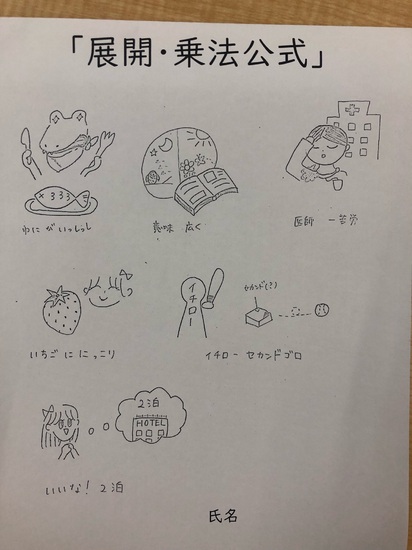 「展開・乗法公式」
わに が いっしっし
意味 広く
医師 一苦労
イチロー
セカンド
いちご に にっこり
イチロー セカンドゴロ
2泊
HOTEL
いいな! 2泊
氏名